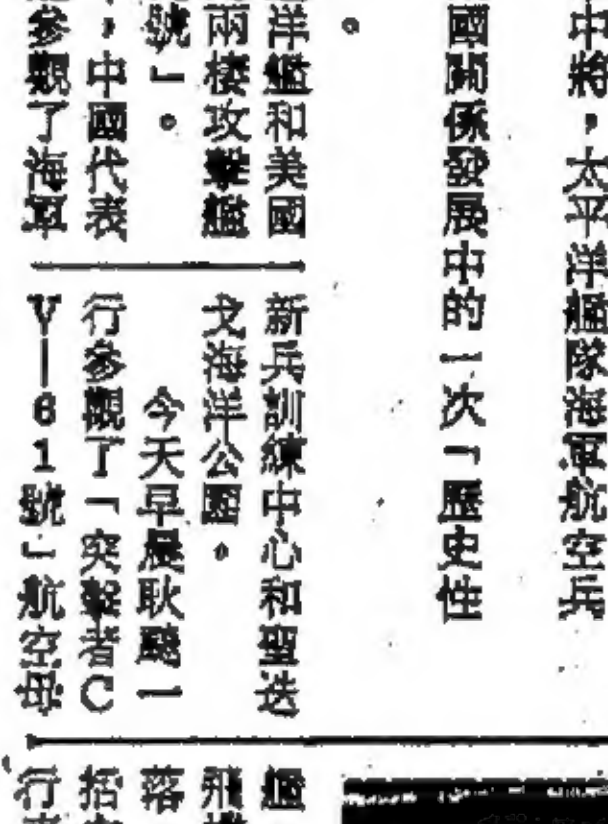 中將，太平洋艦隊海軍航空兵
國關係發展中的一次「歷史性
。
洋艦和美國
兩棲攻擊艦
號」。
，中國代表
參觀了海軍
新兵訓練中心和聖迭
戈海洋公園。
今天早晨耿飈一
行參觀了「突擊者C
V—61號」航空母
艦
飛
落
括
行